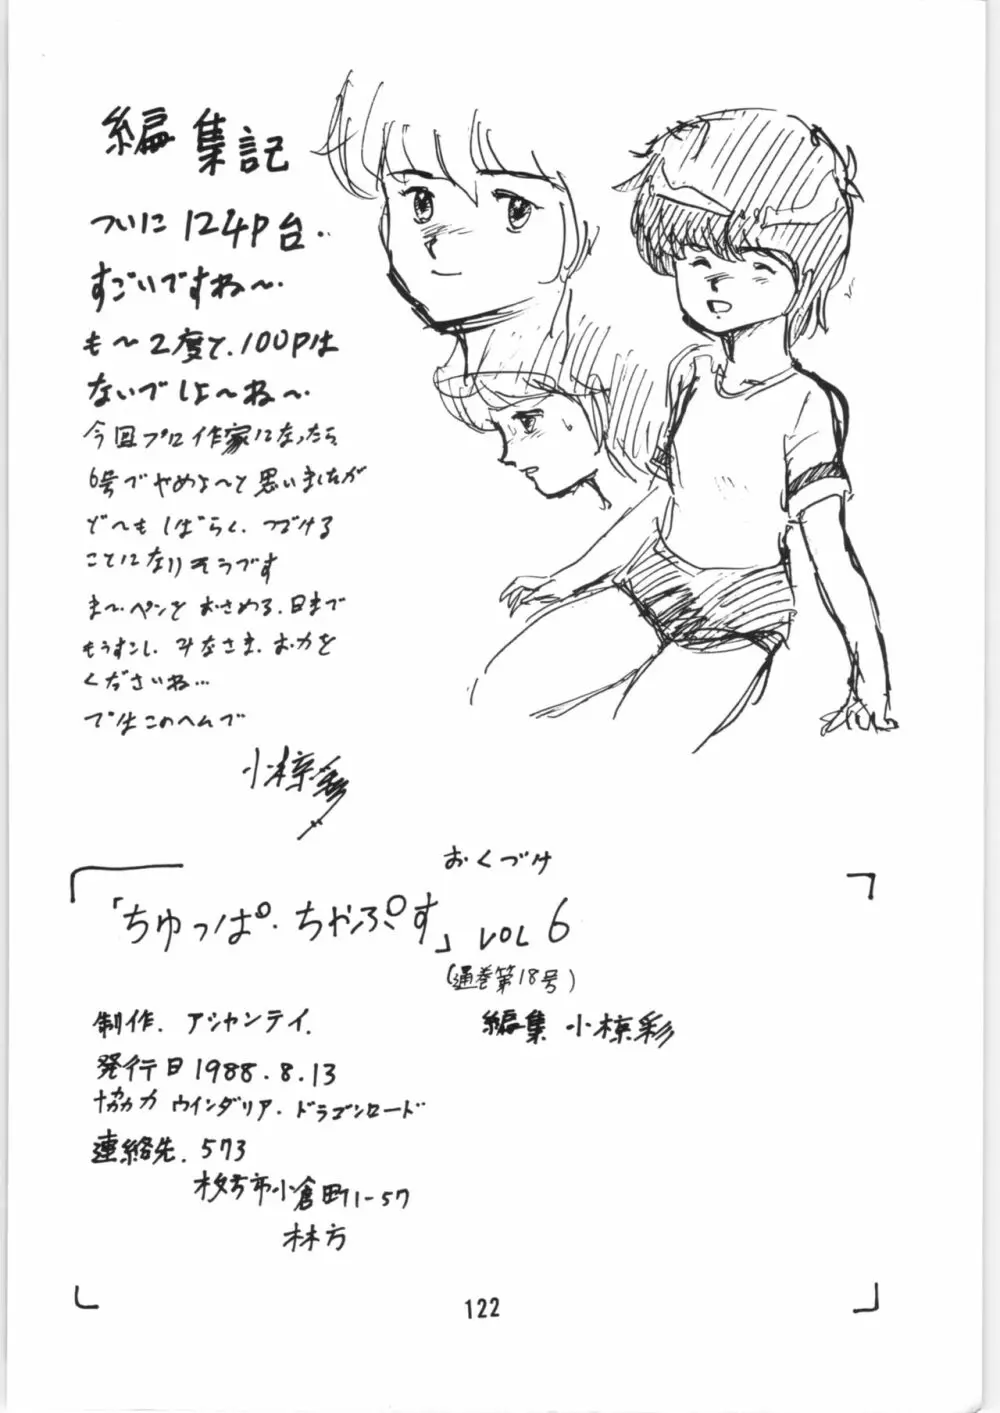 編集記
ついに124P台.
すごいですね〜.
も〜2度と.100Pは
ないでしょ〜ね〜.
今回プロ作家になったら
6号でやめよ〜と思いましたが
ど〜もしばらく.つづける
ことになりそうです
ま〜.ペンをおさめる.日まで
もうすこし.みなさま.お力を
くださいね…
ではこのヘんで
小椋彩
おくづけ
「ちゅっぱ.ちゃぷす」VOL 6
(通巻第18号)
制作.アシャンテイ.
編集 小椋彩
発行日1988.8.13
協力 ウインダリア.ドラゴンロード
連絡先.573
枚方市小倉町1-57
林方
122